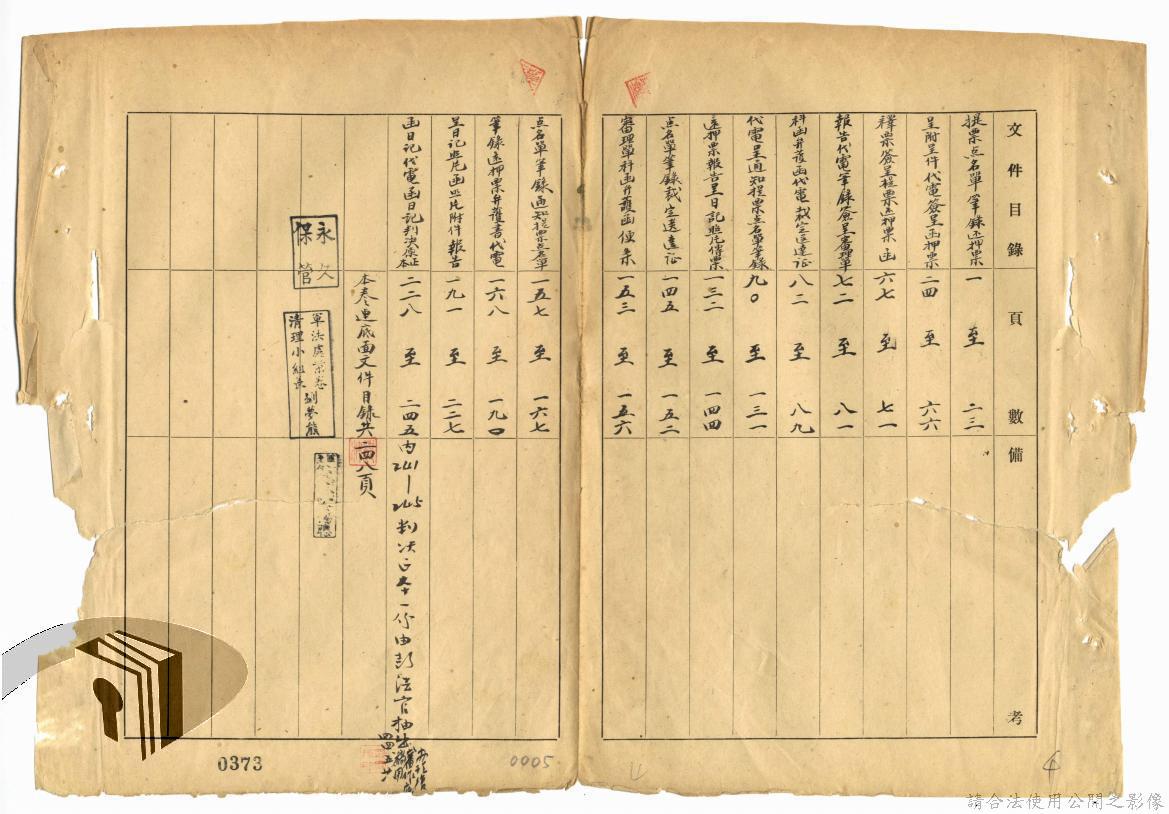 文件目錄 頁數 備考
提票点名單筆錄还押票 一 至 二三
呈附呈件代電簽呈函押票 二四 至 六六
釋票簽呈提票还押票函 六七 至 七一
報告代電筆錄簽呈審理單 七二 至 八一
科函弁護函代電裁定送達証 八二 至 八九
代電呈通知提票点名單筆錄 九〇 至 一三一
还押票報告呈日記照片傳票 一三二 至 一四四
点名單筆錄裁定送達証 一四五 至 一五二
審理單科函弁護函便條 一五三 至 一五六
点名單筆錄通知提票点名單 一五七 至 一六七
筆錄还押票弁護書代電 一六八 至 一九〇
呈日記照片函照片附件報告 一九一 至 二二七
函日記代電函日記判決原本正 二二八 至 二四五 內241—245判決正本一份由彭法官抽出
四四五廿
本卷連底面文件目錄共二四八頁
永久
保管
軍法處案卷
清理小組長 劉夢熊
0373
0005
4
請合法使用公開之影像